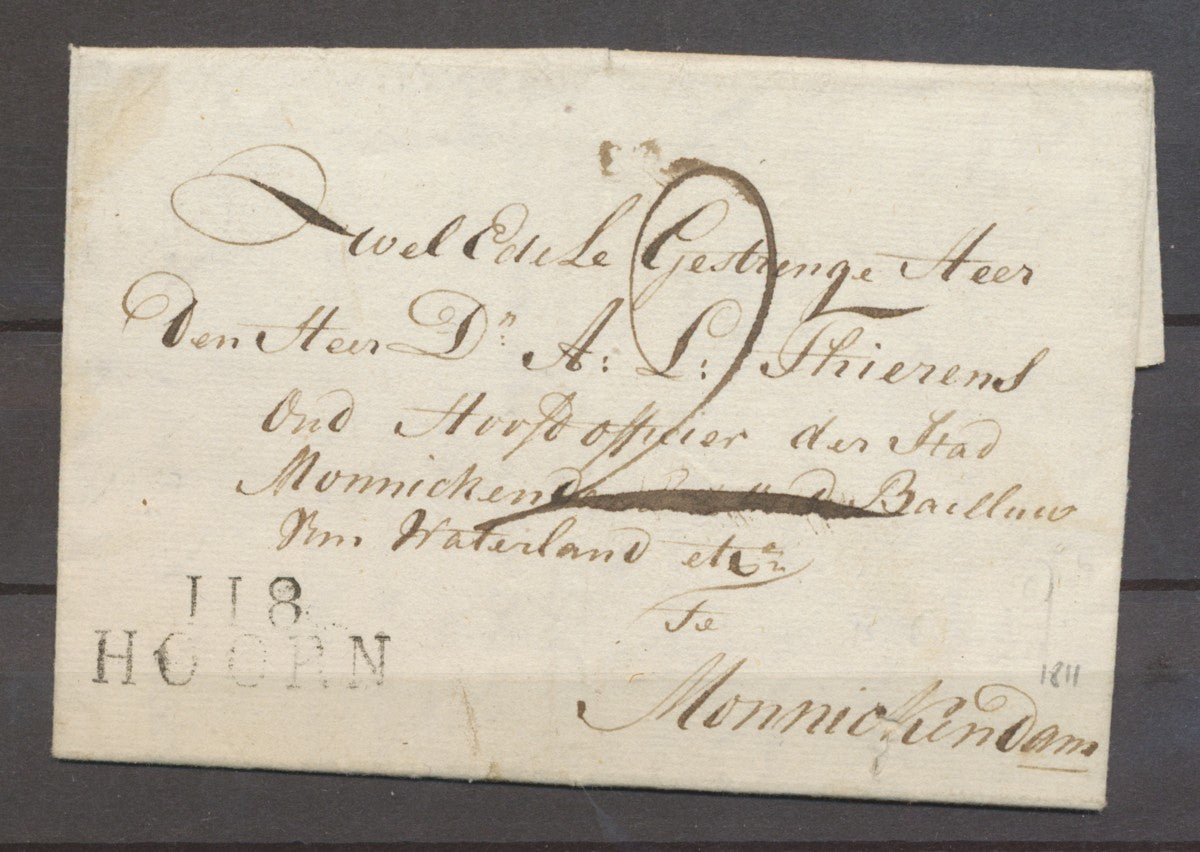 Wel EdeLe Gestrenge Heer
Den Heer Dn. A: L: Thierens
Oud Hooft officier der Stad
Monnickendam Bailluw
van Waterland etca
Te
Monnickendam
118
HOORN
1811
2